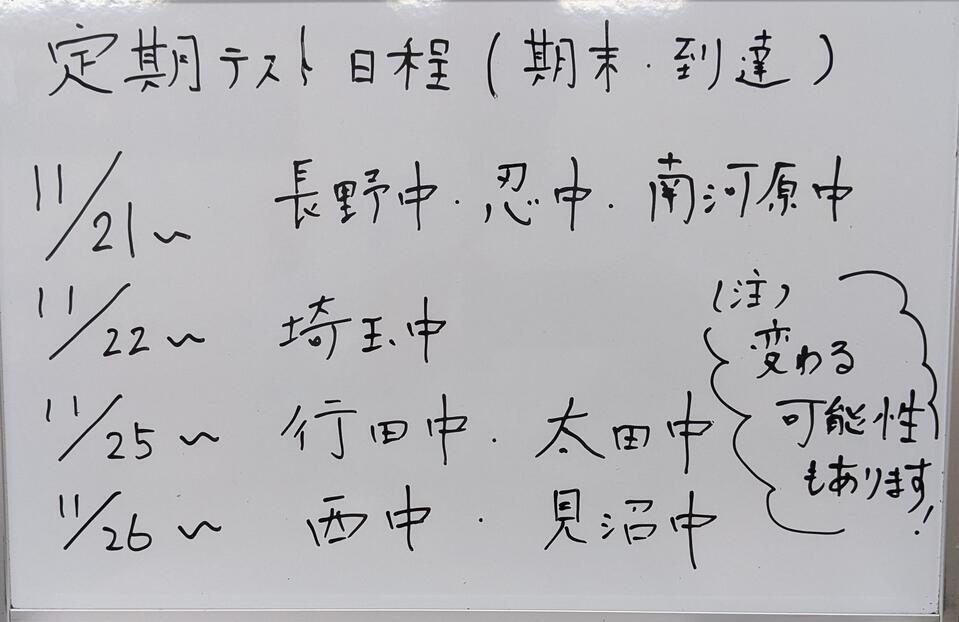 定期テスト日程(期末・到達)
11/21~ 長野中・忍中・南河原中
11/22~ 埼玉中
11/25~ 行田中・太田中
11/26~ 西中・見沼中
(注)
変わる
可能性
もあります!